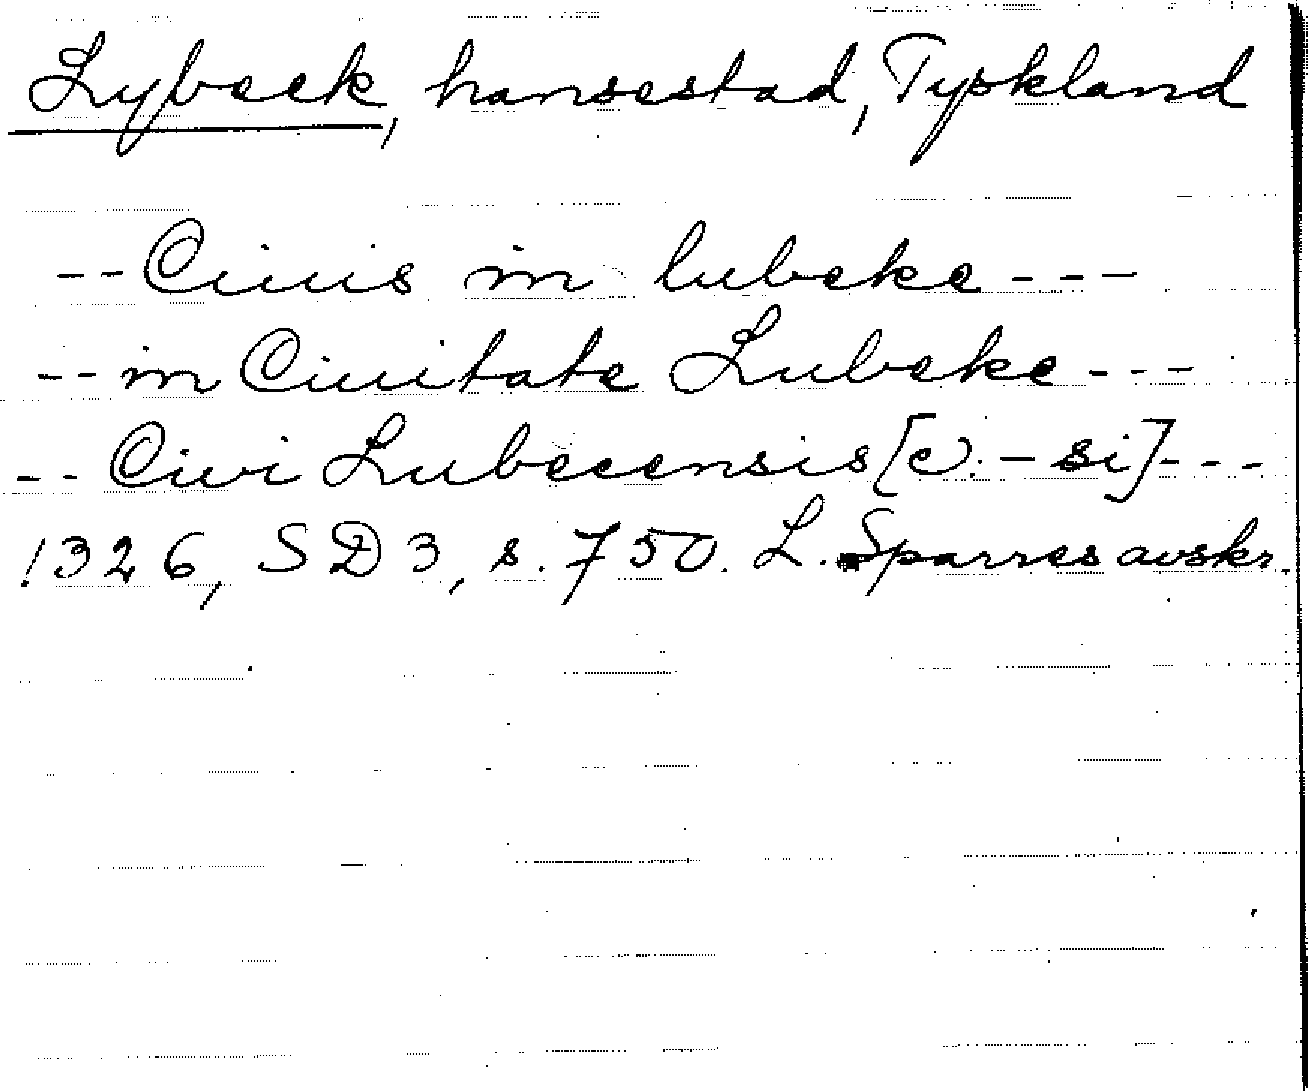 Lybeck, hansestad, Tyskland
-- Ciuis in lubeke ---
-- in Ciuitate Lubeke ---
-- Civi Lubecensis [ɔ: - si] ---
1326, SD 3, s. 750. L. Sparres avskr.